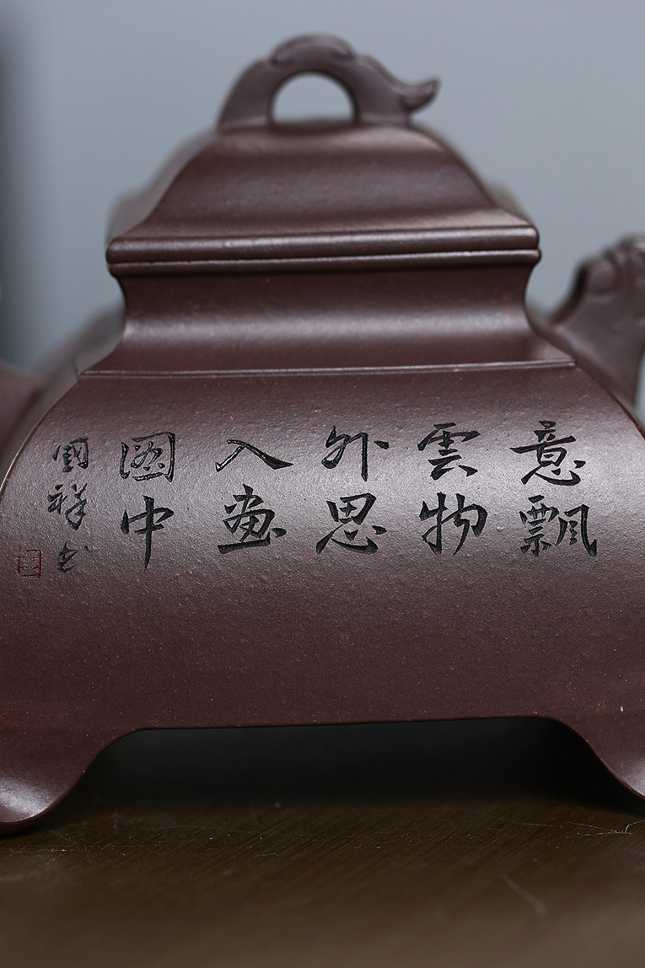 意飄
雲物
外思
入畫
圖中
國祥書